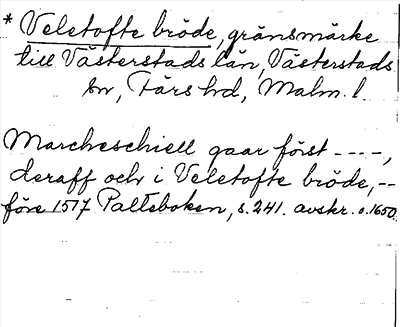 * Veletofte bröde, gränsmärke
till Västerstads län, Västerstads
sn, Färs hd, Malm. l.
Marcheschiell gaar först ----,
deraff och i Veletofte bröde, --
före 1517 Palteboken, s. 241. avskr. o. 1650.